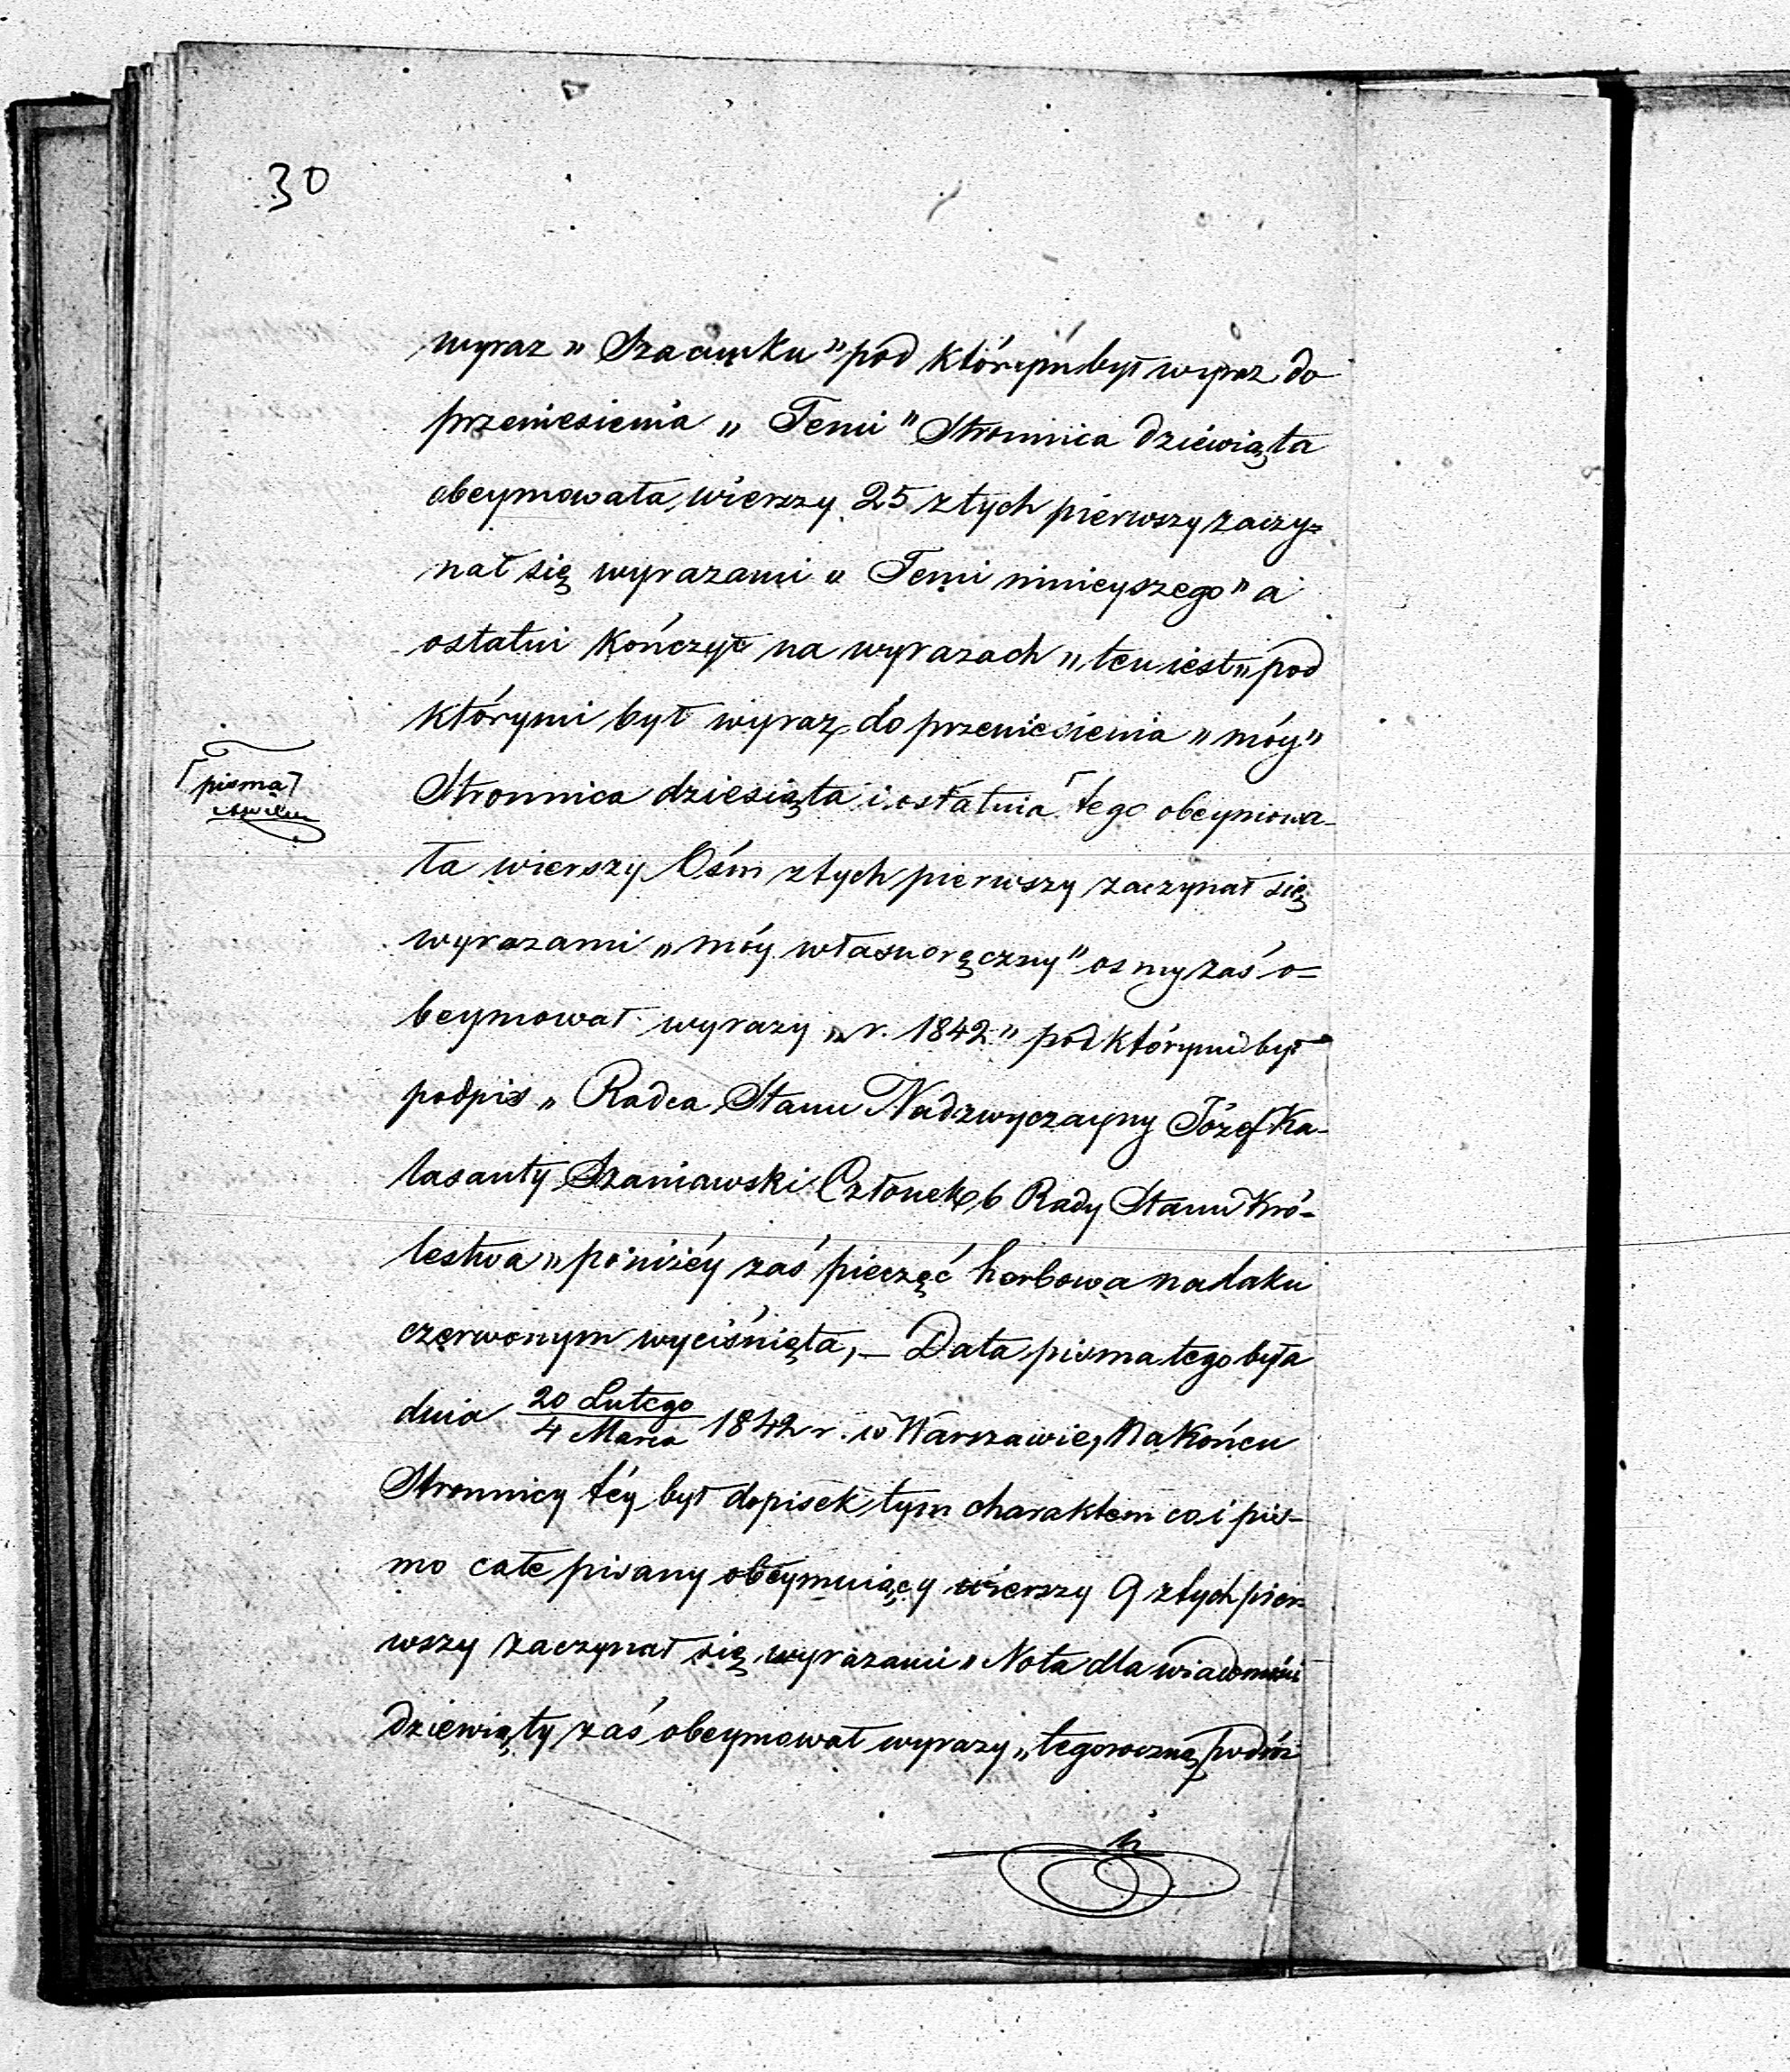 30
wyraz „Szacunku” pod którym był wyraz do
przeniesienia „Temi” Stronnica dziéwiąta
obeymowała wierszy 25 z tych piérwszy zaczy=
nał się wyrazami „Temi ninieyszego” a
ostatni kończył na wyrazach „ten iest” pod
którymi był wyraz do przeniesienia „móy”
⌈pisma⌉
Stronnica dziesiąta i ostatnia ⌈ tego obeymowa-
ła wierszy Ośm z tych pierwszy zaczynał się
wyrazami „móy własnoręczny” osmy zaś o=
beymował wyrazy „r. 1842” pod którymi był
podpis „Radca Stanu Nadzwyczayny Józef Ka-
lasanty Szaniawski Członek b Rady Stanu Kró-
lestwa” poniżéy zaś pieczęć herbowa na laku
czerwonym wyciśnięta, – Data pisma tego była
dnia 20 Lutego / 4 Marca 1842 r. w Warszawie, Na końcu
Stronnicy téy był dopisek tym charaktem co i pis-
mo całe pisany obeymuiący wierszy 9 z tych pier-
wszy zaczynał się wyrazami „Nota dla wiadomości
dziewiąty zaś obeymował wyrazy „tegoroczną podróż